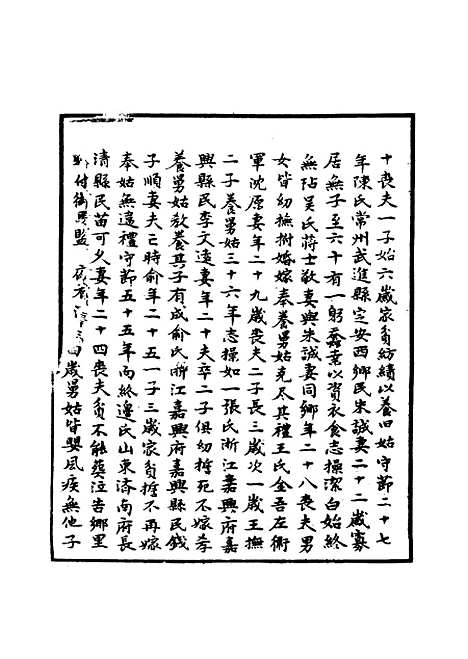 十喪夫一子始六歲家貧紡績以養舅姑守節二十七
年陳氏常州武進縣定安西鄉民朱誠妻二十二歲寡
居無子至六十有一躬蠶桑以資衣食志操潔白始終
無玷吳氏蔣士敬妻與朱誠妻同鄉年二十八喪夫男
女皆幼撫樹婚嫁奉養舅姑克尽其禮王氏金吾左衛
軍沈原妻年二十九歲喪夫二子長三歲次一歲王撫
二子養舅姑三十六年志操如一張氏浙江嘉興府嘉
興縣民李文遠妻年二十夫卒二子俱幼誓死不嫁孝
養舅姑教養其子有成俞氏浙江嘉興府嘉興縣民錢
子順妻夫亡時俞年二十五一子三歲家貧誓不再嫁
奉姑無違禮守節五十五年而終邊氏山東濟南府長
清縣民苗可久妻年二十四喪夫貧不能葬泣告鄉里
付衛 歲舅姑皆嬰風疾無他子